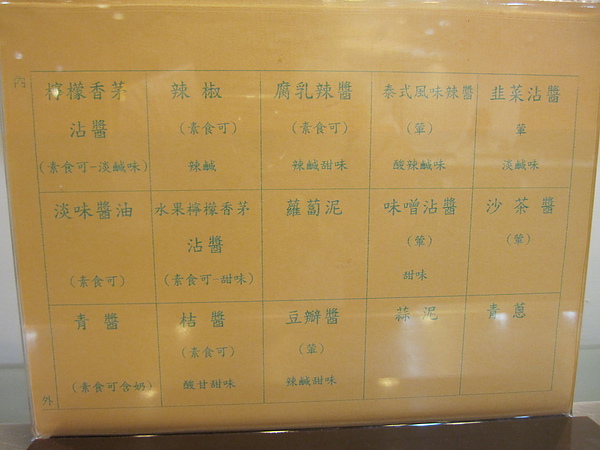 內
檸檬香茅
沾醬
(素食可-淡鹹味)
辣椒
(素食可)
辣鹹
腐乳辣醬
(素食可)
辣鹹甜味
泰式風味辣醬
(葷)
酸辣鹹味
韭菜沾醬
葷
淡鹹味
淡味醬油
(素食可)
水果檸檬香茅
沾醬
(素食可-甜味)
蘿蔔泥
味噌沾醬
(葷)
甜味
沙茶醬
(葷)
青醬
(素食可含奶)
桔醬
(素食可)
酸甘甜味
豆瓣醬
(葷)
辣鹹甜味
蒜泥
青蔥
外